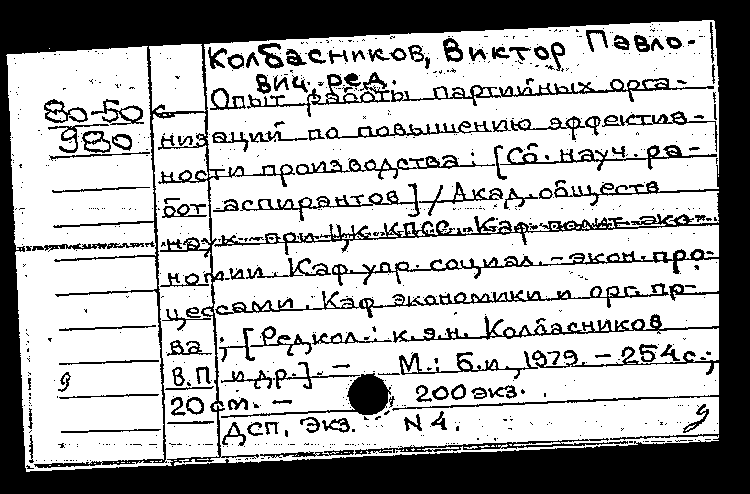 Колбасников, Виктор Павло-
вич, ред.
80-50
980
Опыт работы партийных орга-
низаций по повышению эффектив-
ности производства: [Сб. науч. ра-
бот аспирантов] / Акад. обществ
наук при ЦК КПСС. Каф. полит. эко-
номии. Каф. упр. социал.-экон. про-
цессами. Каф. экономики и орг. пр-
ва ; [Редкол.: к.э.н. Колбасников
В.П. и др.]. — М.: Б.и., 1979. — 254с.;
20 см. — 200 экз.
Дсп. Экз. N 4.